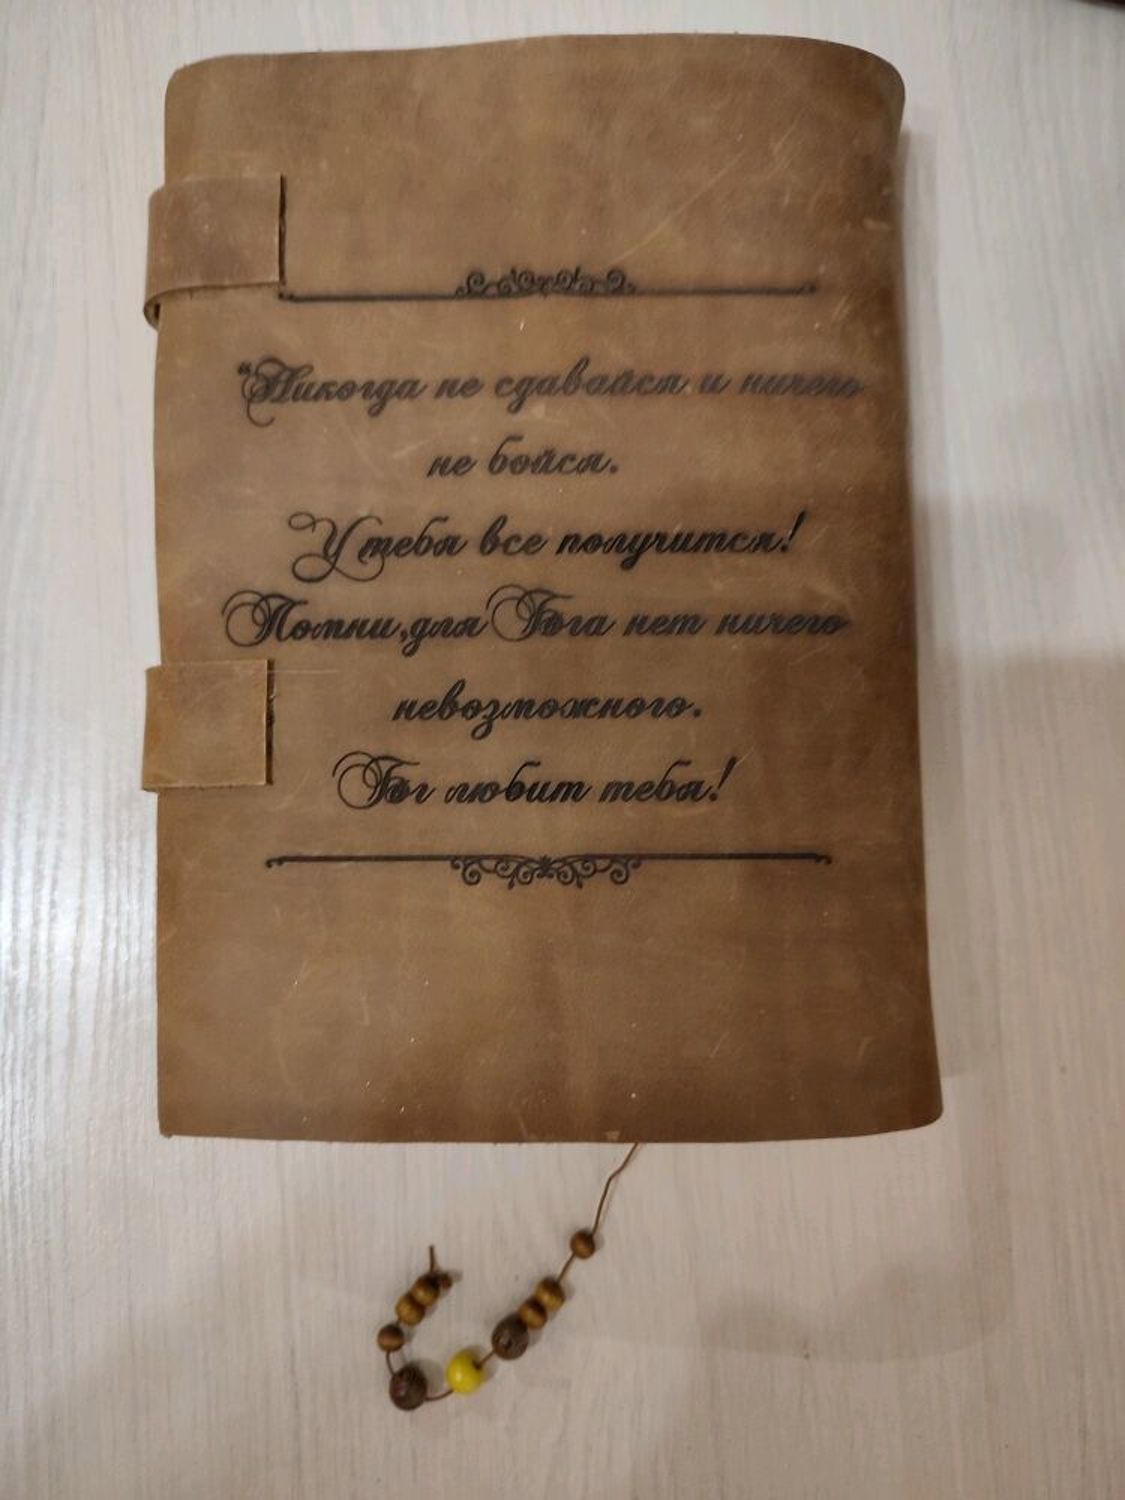 “Никогда не сдавайся и ничего
не бойся.
У тебя все получится!
Помни,для Бога нет ничего
невозможного.
Бог любит тебя!